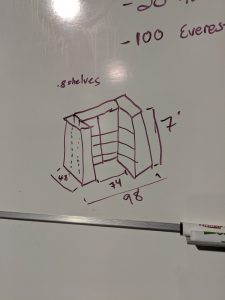 - 100 Everes
. 8 shelves
7'
48
74
98